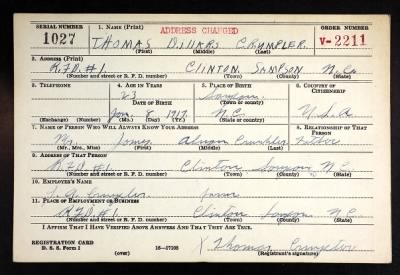 SERIAL NUMBER
1027
1. NAME (Print)
ADDRESS CHANGED
ORDER NUMBER
V-2211
THOMAS DILLARD CRUMPLER
(First) (Middle) (Last)
2. ADDRESS (Print)
R.F.D. #1. CLINTON, SAMPSON N.C.
(Number and street or R. F. D. number) (Town) (County) (State)
3. TELEPHONE
4. AGE IN YEARS
23
5. PLACE OF BIRTH
Sampson
(Town or county)
6. COUNTRY OF CITIZENSHIP
DATE OF BIRTH
Jan. 8 1917
N.C.
U.S.A.
(Exchange) (Number) (Mo.) (Day) (Yr.) (State or country)
7. NAME OF PERSON WHO WILL ALWAYS KNOW YOUR ADDRESS
8. RELATIONSHIP OF THAT PERSON
Mr. James Crumpler Father
(Mr., Mrs., Miss) (First) (Middle) (Last)
9. ADDRESS OF THAT PERSON
R.F.D. #1. Clinton Sampson N.C.
(Number and street or R. F. D. number) (Town) (County) (State)
10. EMPLOYER'S NAME
Crumpler farm
11. PLACE OF EMPLOYMENT OR BUSINESS
R.F.D. #1. Clinton Sampson N.C.
(Number and street or R. F. D. number) (Town) (County) (State)
I AFFIRM THAT I HAVE VERIFIED ABOVE ANSWERS AND THAT THEY ARE TRUE.
REGISTRATION CARD
D. S. S. Form 1 16-17105
(over)
X Thomas Crumpler
(Registrant's signature)